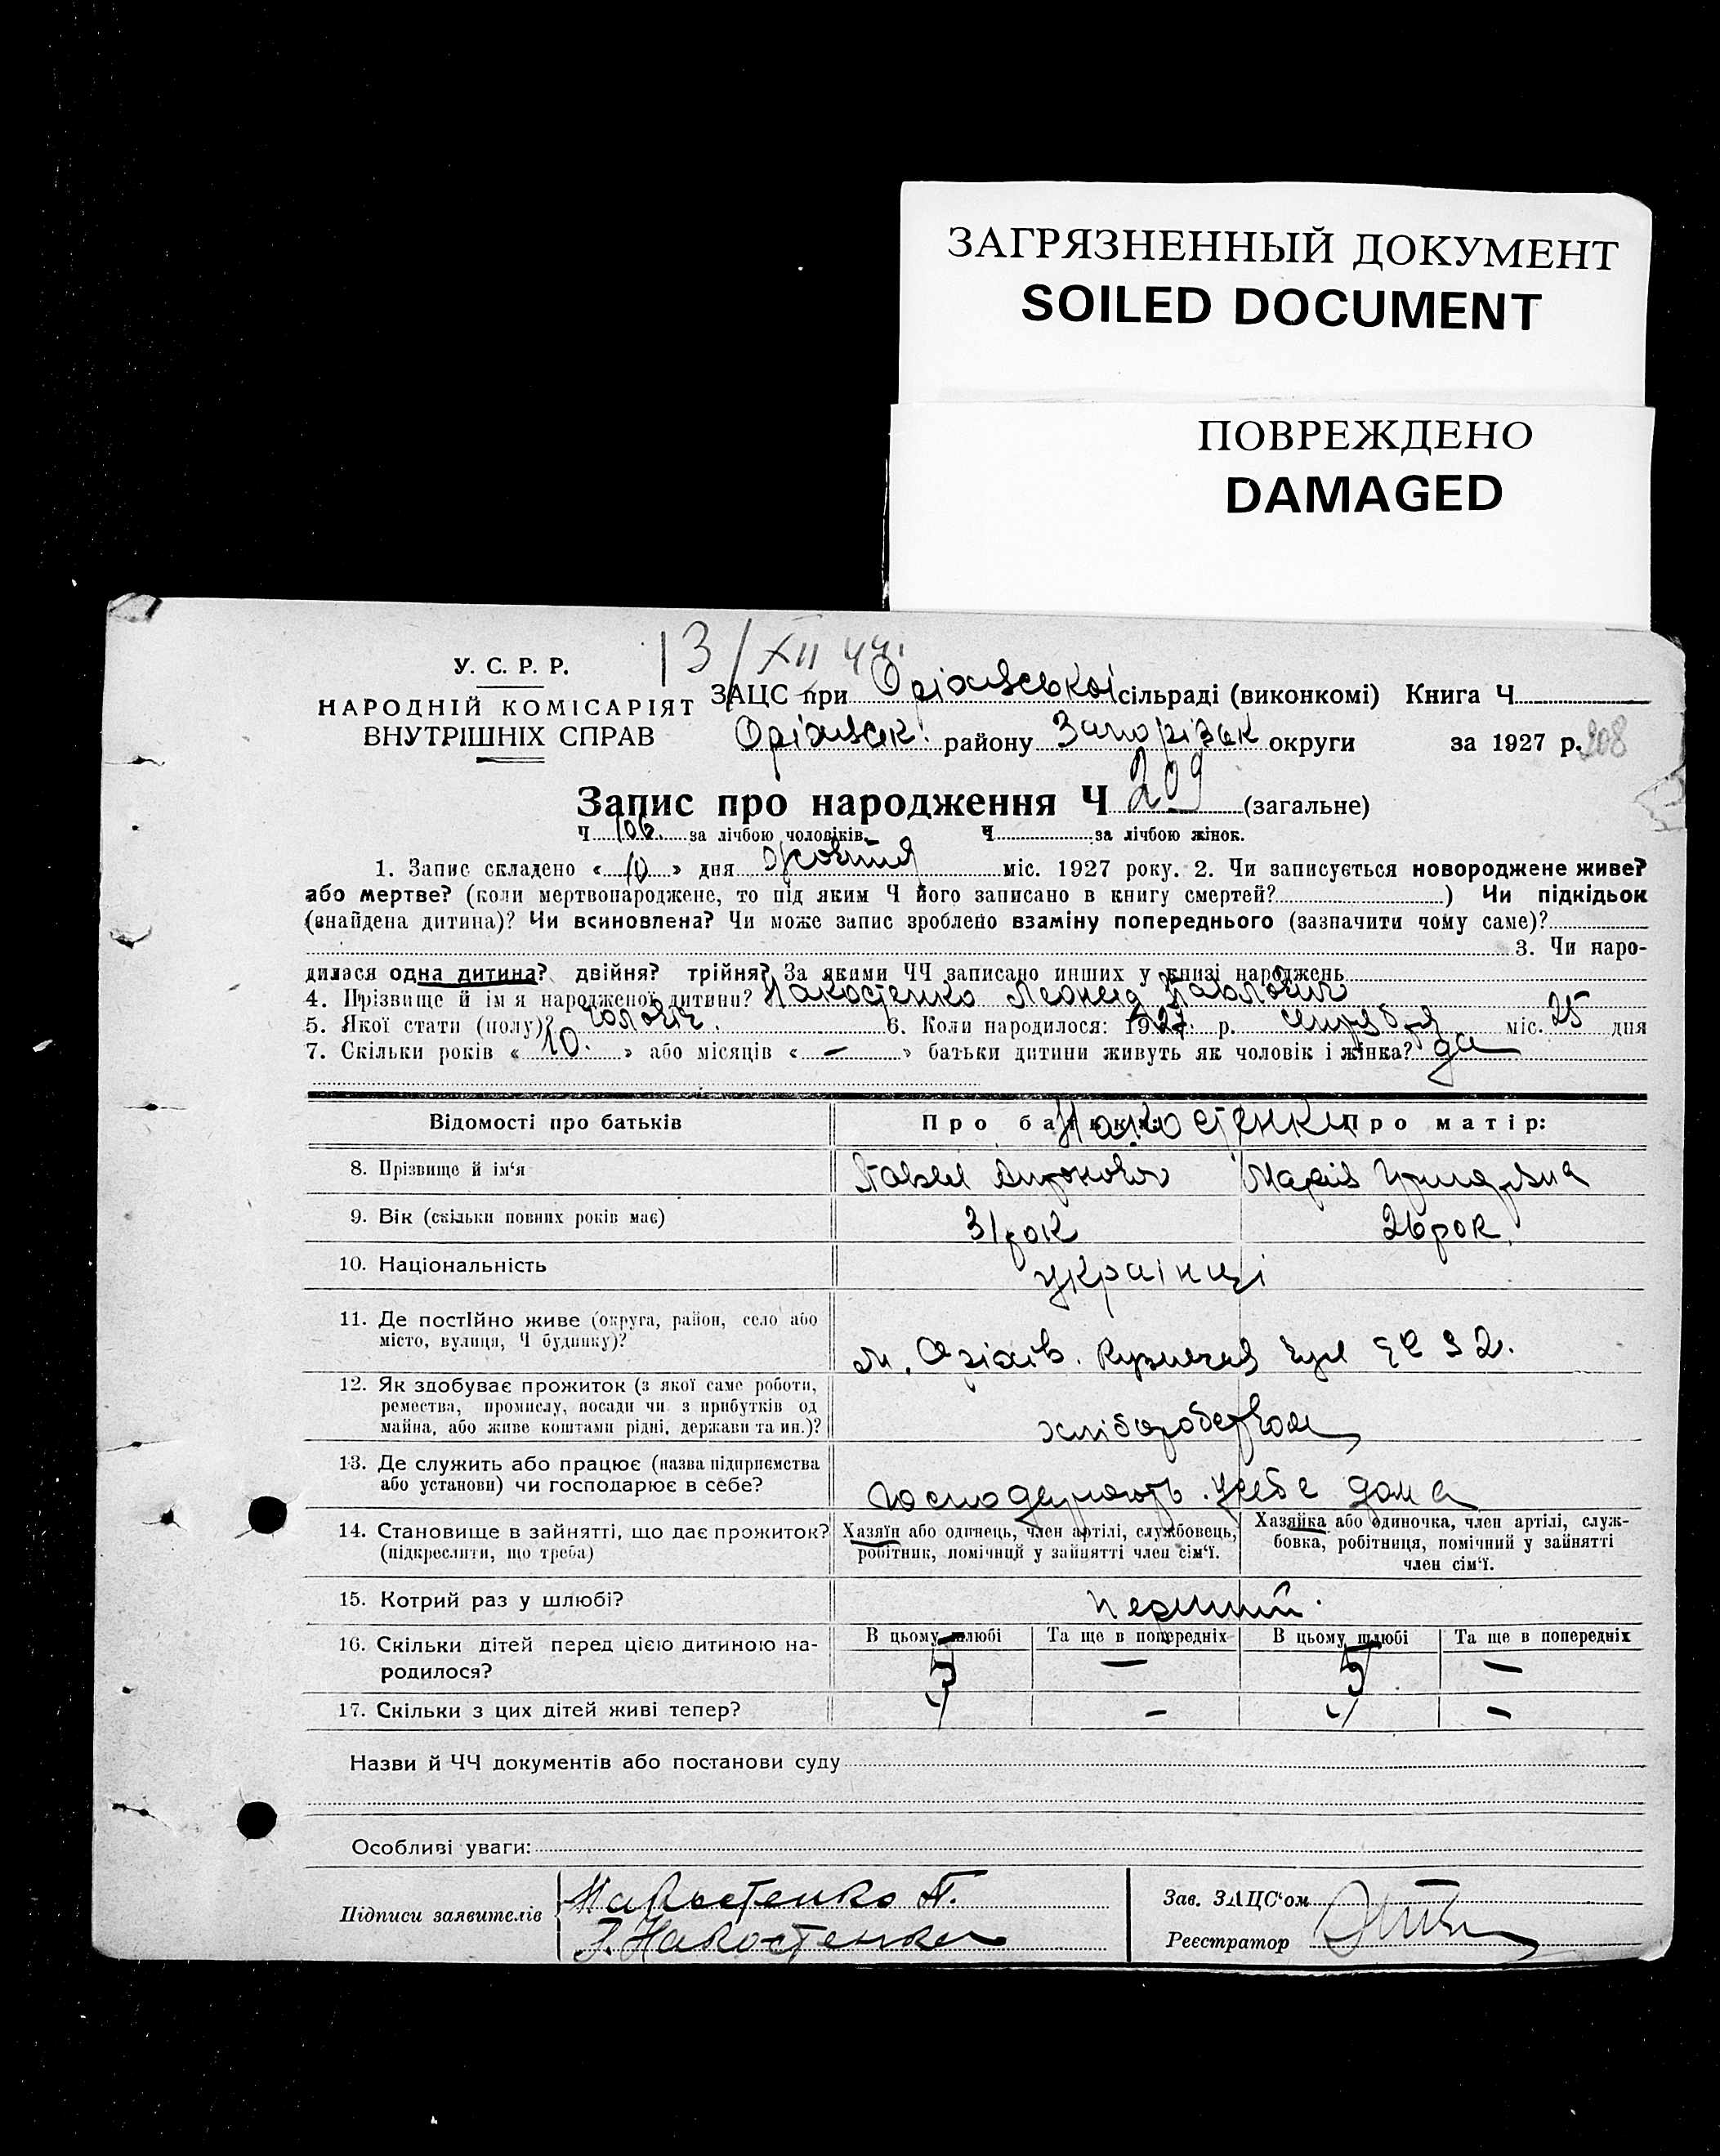 ЗАГРЯЗНЕННЫЙ ДОКУМЕНТ
SOILED DOCUMENT
ПОВРЕЖДЕНО
DAMAGED
13/XII 44.
У. С. Р. Р.
НАРОДНІЙ КОМІСАРІЯТ
ВНУТРІШНІХ СПРАВ
ЗАЦС при Оріхівської сільраді (виконкомі) Книга Ч
Оріхівськ. району Запорізьк округи за 1927 р. 208
Запис про народження Ч 209 (загальне)
Ч 106. за лічбою чоловіків. Ч за лічбою жінок.
1. Запис складено « 10 » дня жовтня міс. 1927 року. 2. Чи записується новороджене живе?
або мертве? (коли мертвонароджене, то під яким Ч його записано в книгу смертей? ) Чи підкідьок
(знайдена дитина)? Чи всиновлена? Чи може запис зроблено взаміну попереднього (зазначити чому саме)?
3. Чи наро-
дилася одна дитина? двійня? трійня? За якими ЧЧ записано инших у книзі народжень
4. Прізвище й ім'я народженої дитини? Накостенко Леонид Павлович
5. Якої стати (полу)? чоловіч. 6. Коли народилося: 1927 р. сентября міс. 25 дня
7. Скільки років « 10. » або місяців « — » батьки дитини живуть як чоловік і жінка? да
Відомості про батьків Про батька: Накостенки Про матір:
8. Прізвище й ім'я Павел Миронович Марія
9. Вік (скільки повних років має) 31 рок 26 рок.
10. Національність українці
11. Де постійно живе (округа, район, село або
місто, вулиця, Ч будинку)? м. Оріхів.
12. Як здобуває прожиток (з якої саме роботи,
ремества, промислу, посади чи з прибутків од
майна, або живе коштами рідні, держави та ин.)? хліборобством
13. Де служить або працює (назва підприємства
або установи) чи господарює в себе? господарюють у себе дома
14. Становище в зайнятті, що дає прожиток?
(підкреслити, що треба)
Хазяїн або одинець, член артілі, службовець,
робітник, помічний у зайнятті член сім'ї.
Хазяйка або одиночка, член артілі, служ-
бовка, робітниця, помічний у зайнятті
член сім'ї.
15. Котрий раз у шлюбі? перший.
16. Скільки дітей перед цією дитиною на-
родилося?
В цьому шлюбі Та ще в попередніх В цьому шлюбі Та ще в попередніх
5 — 5 —
17. Скільки з цих дітей живі тепер? - -
Назви й ЧЧ документів або постанови суду
Особливі уваги:
Підписи заявителів
Накостенко П.
Накостенко
Зав. ЗАЦС'ом
Реєстратор